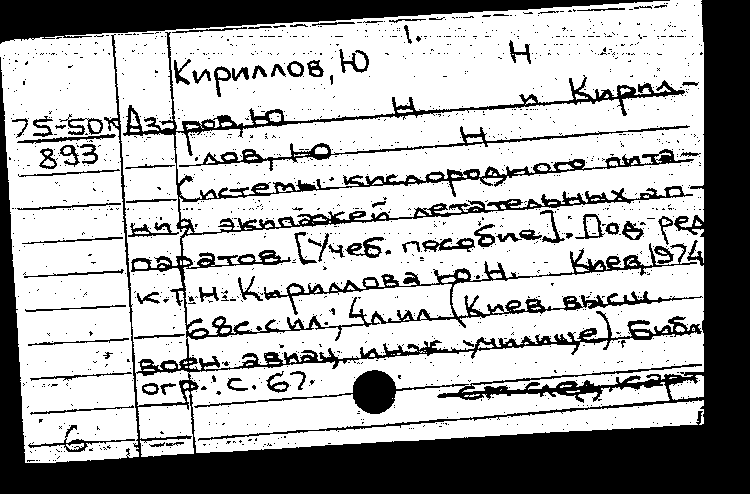 1.
Кириллов, Ю Н
75-50к Азаров, Ю Н и Кирил-
893 лов, Ю Н
Системы кислородного пита-
ния экипажей летательных ап-
паратов. [Учеб. пособие]. Под. ред
к.т.н. Кириллова Ю.Н. Киев, 1974
68с. с ил.; 4л. ил (Киев. высш.
воен. авиац. инж. училище). Библи
огр.: с. 67.
см след. карт
6